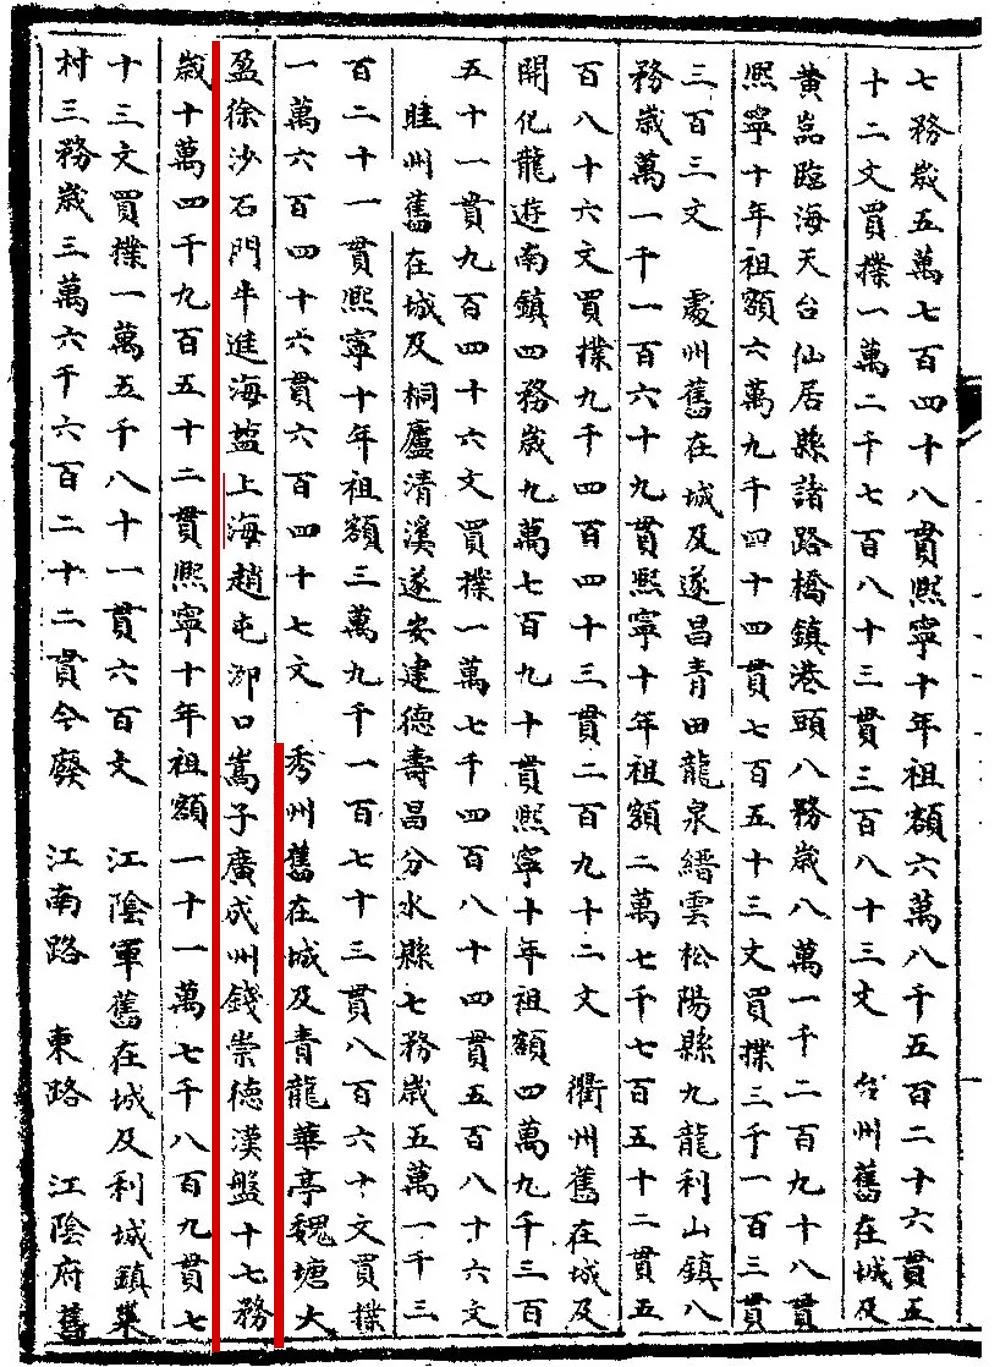 七務歲五萬七百四十八貫熙寧十年祖額六萬八千五百二十六貫五
十二文買撲一萬二千七百八十三貫三百八十三文　台州舊在城及
黃巖臨海天台仙居縣諸路橋鎮港頭八務歲八萬一千二百九十八貫
熙寧十年祖額六萬九千四十四貫七百五十三文買撲三千一百三貫
三百三文　處州舊在城及遂昌青田龍泉縉雲松陽縣九龍利山鎮八
務歲萬一千一百六十九貫熙寧十年祖額二萬七千七百五十二貫五
百八十六文買撲九千四百四十三貫二百九十二文　衢州舊在城及
開化龍遊南鎮四務歲九萬七百九十貫熙寧十年祖額四萬九千三百
五十一貫九百四十六文買撲一萬七千四百八十四貫五百八十六文
睦州舊在城及桐廬清溪遂安建德壽昌分水縣七務歲五萬一千三
百二十一貫熙寧十年祖額三萬九千一百七十三貫八百六十文買撲
一萬六百四十六貫六百四十七文　秀州舊在城及青龍華亭魏塘大
盈徐沙石門牛進海盐上海趙屯泖口嵩子廣成州錢崇德漢盤十七務
歲十萬四千九百五十二貫熙寧十年祖額一十一萬七千八百九貫七
十三文買撲一萬五千八十一貫六百文　江陰軍舊在城及利城鎮
村三務歲三萬六千六百二十二貫今廢　江南路　東路　江陰府舊